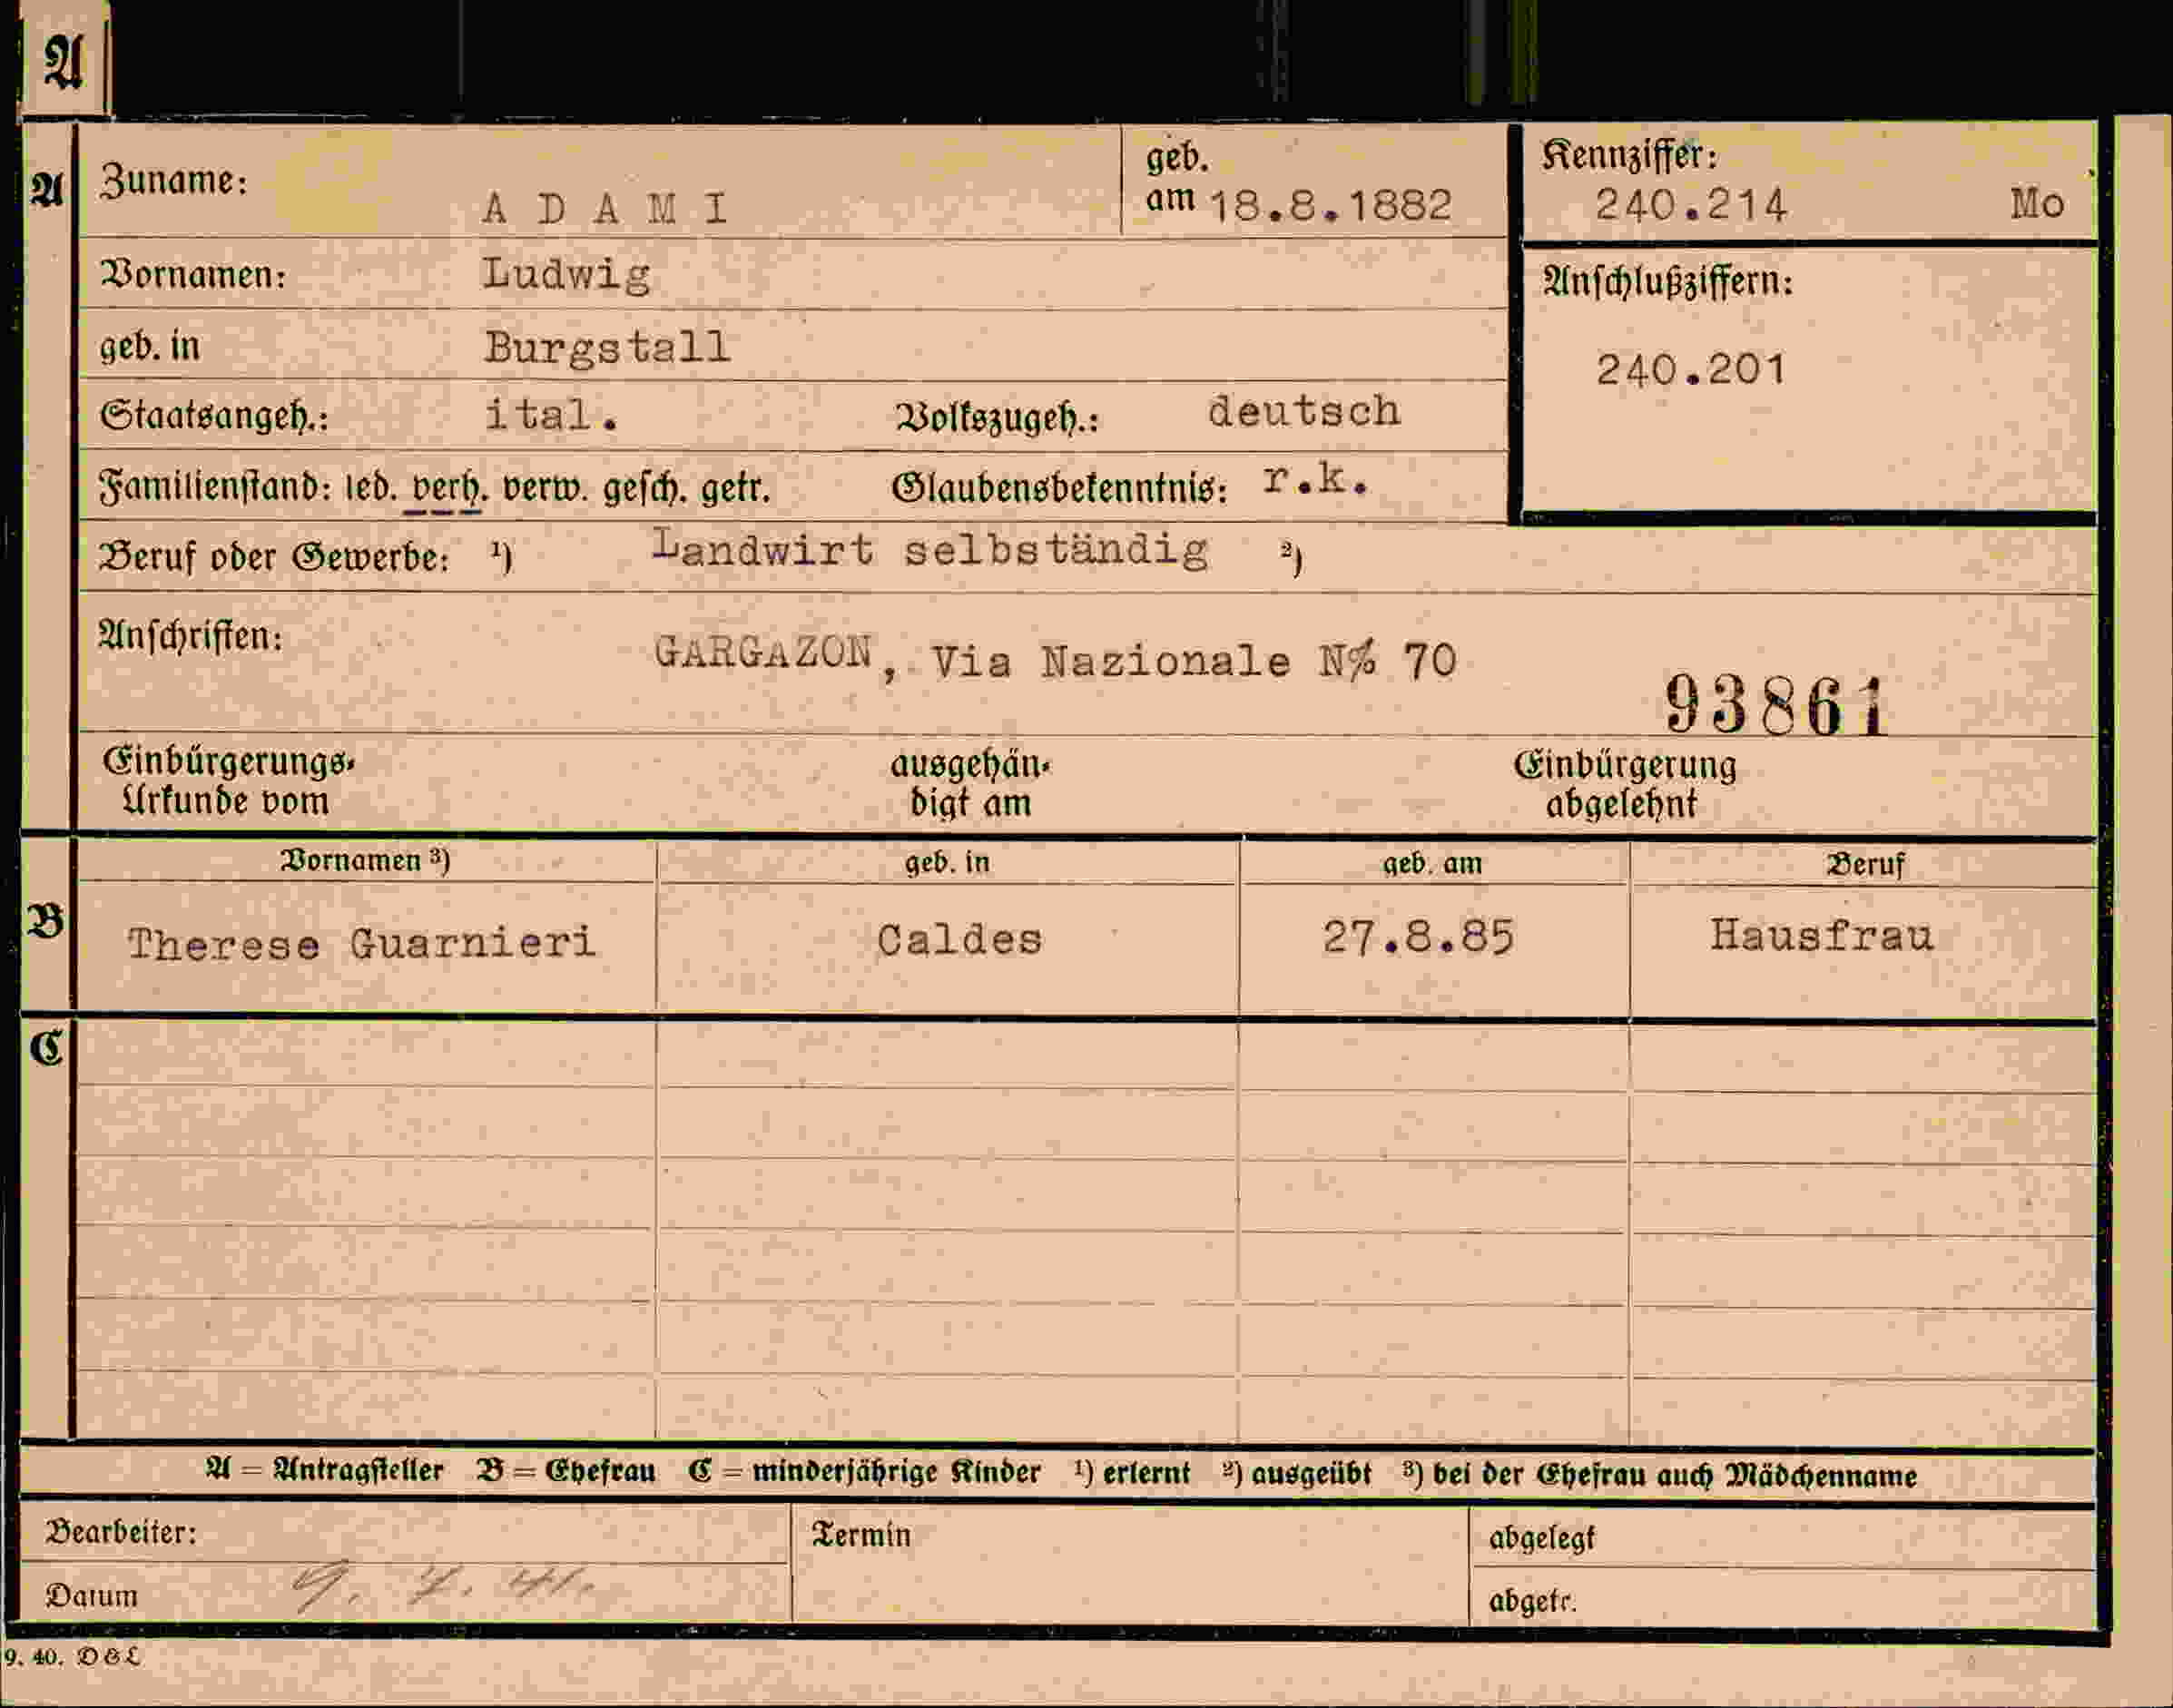 A
A Zuname: ADAMI geb. am 18.8.1882 Kennziffer: 240.214 Mo
Vornamen: Ludwig Anschlußziffern:
geb. in Burgstall 240.201
Staatsangeh.: ital. Volkszugeh.: deutsch
Familienstand: led. verh. verw. gesch. getr. Glaubensbekenntnis: r.k.
Beruf oder Gewerbe: ¹) Landwirt selbständig ²)
Anschriften: GARGAZON, Via Nazionale N% 70
93861
Einbürgerungs- ausgehän- Einbürgerung
Urkunde vom digt am abgelehnt
Vornamen ³) geb. in geb. am Beruf
B Therese Guarnieri Caldes 27.8.85 Hausfrau
C
A = Antragsteller B = Ehefrau C = minderjährige Kinder ¹) erlernt ²) ausgeübt ³) bei der Ehefrau auch Mädchenname
Bearbeiter: Termin abgelegt
Datum 9. 7. 41. abgetr.
9. 40. D&L